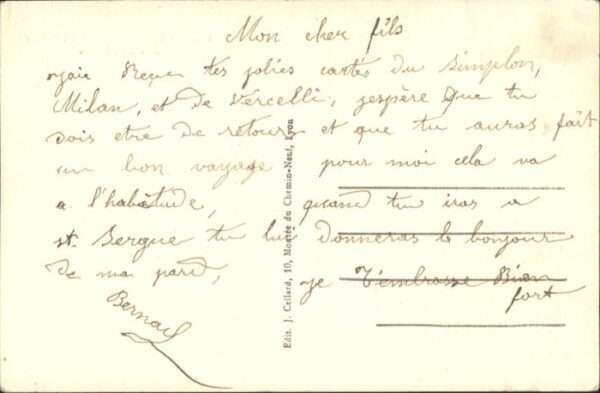 Mon cher fils
j'ai Reçu tes jolies cartes du Simplon,
Milan, et de Vercelli, j'espère que tu
dois etre de retour et que tu auras fait
un bon voyage pour moi cela va
a l'habitude, quand tu iras a
st. Sergue tu lui donneras le bonjour
de ma part, je t'embrasse Bien
fort
Edit. J. Cellard, 10, Montée du Chemin-Neuf, Lyon